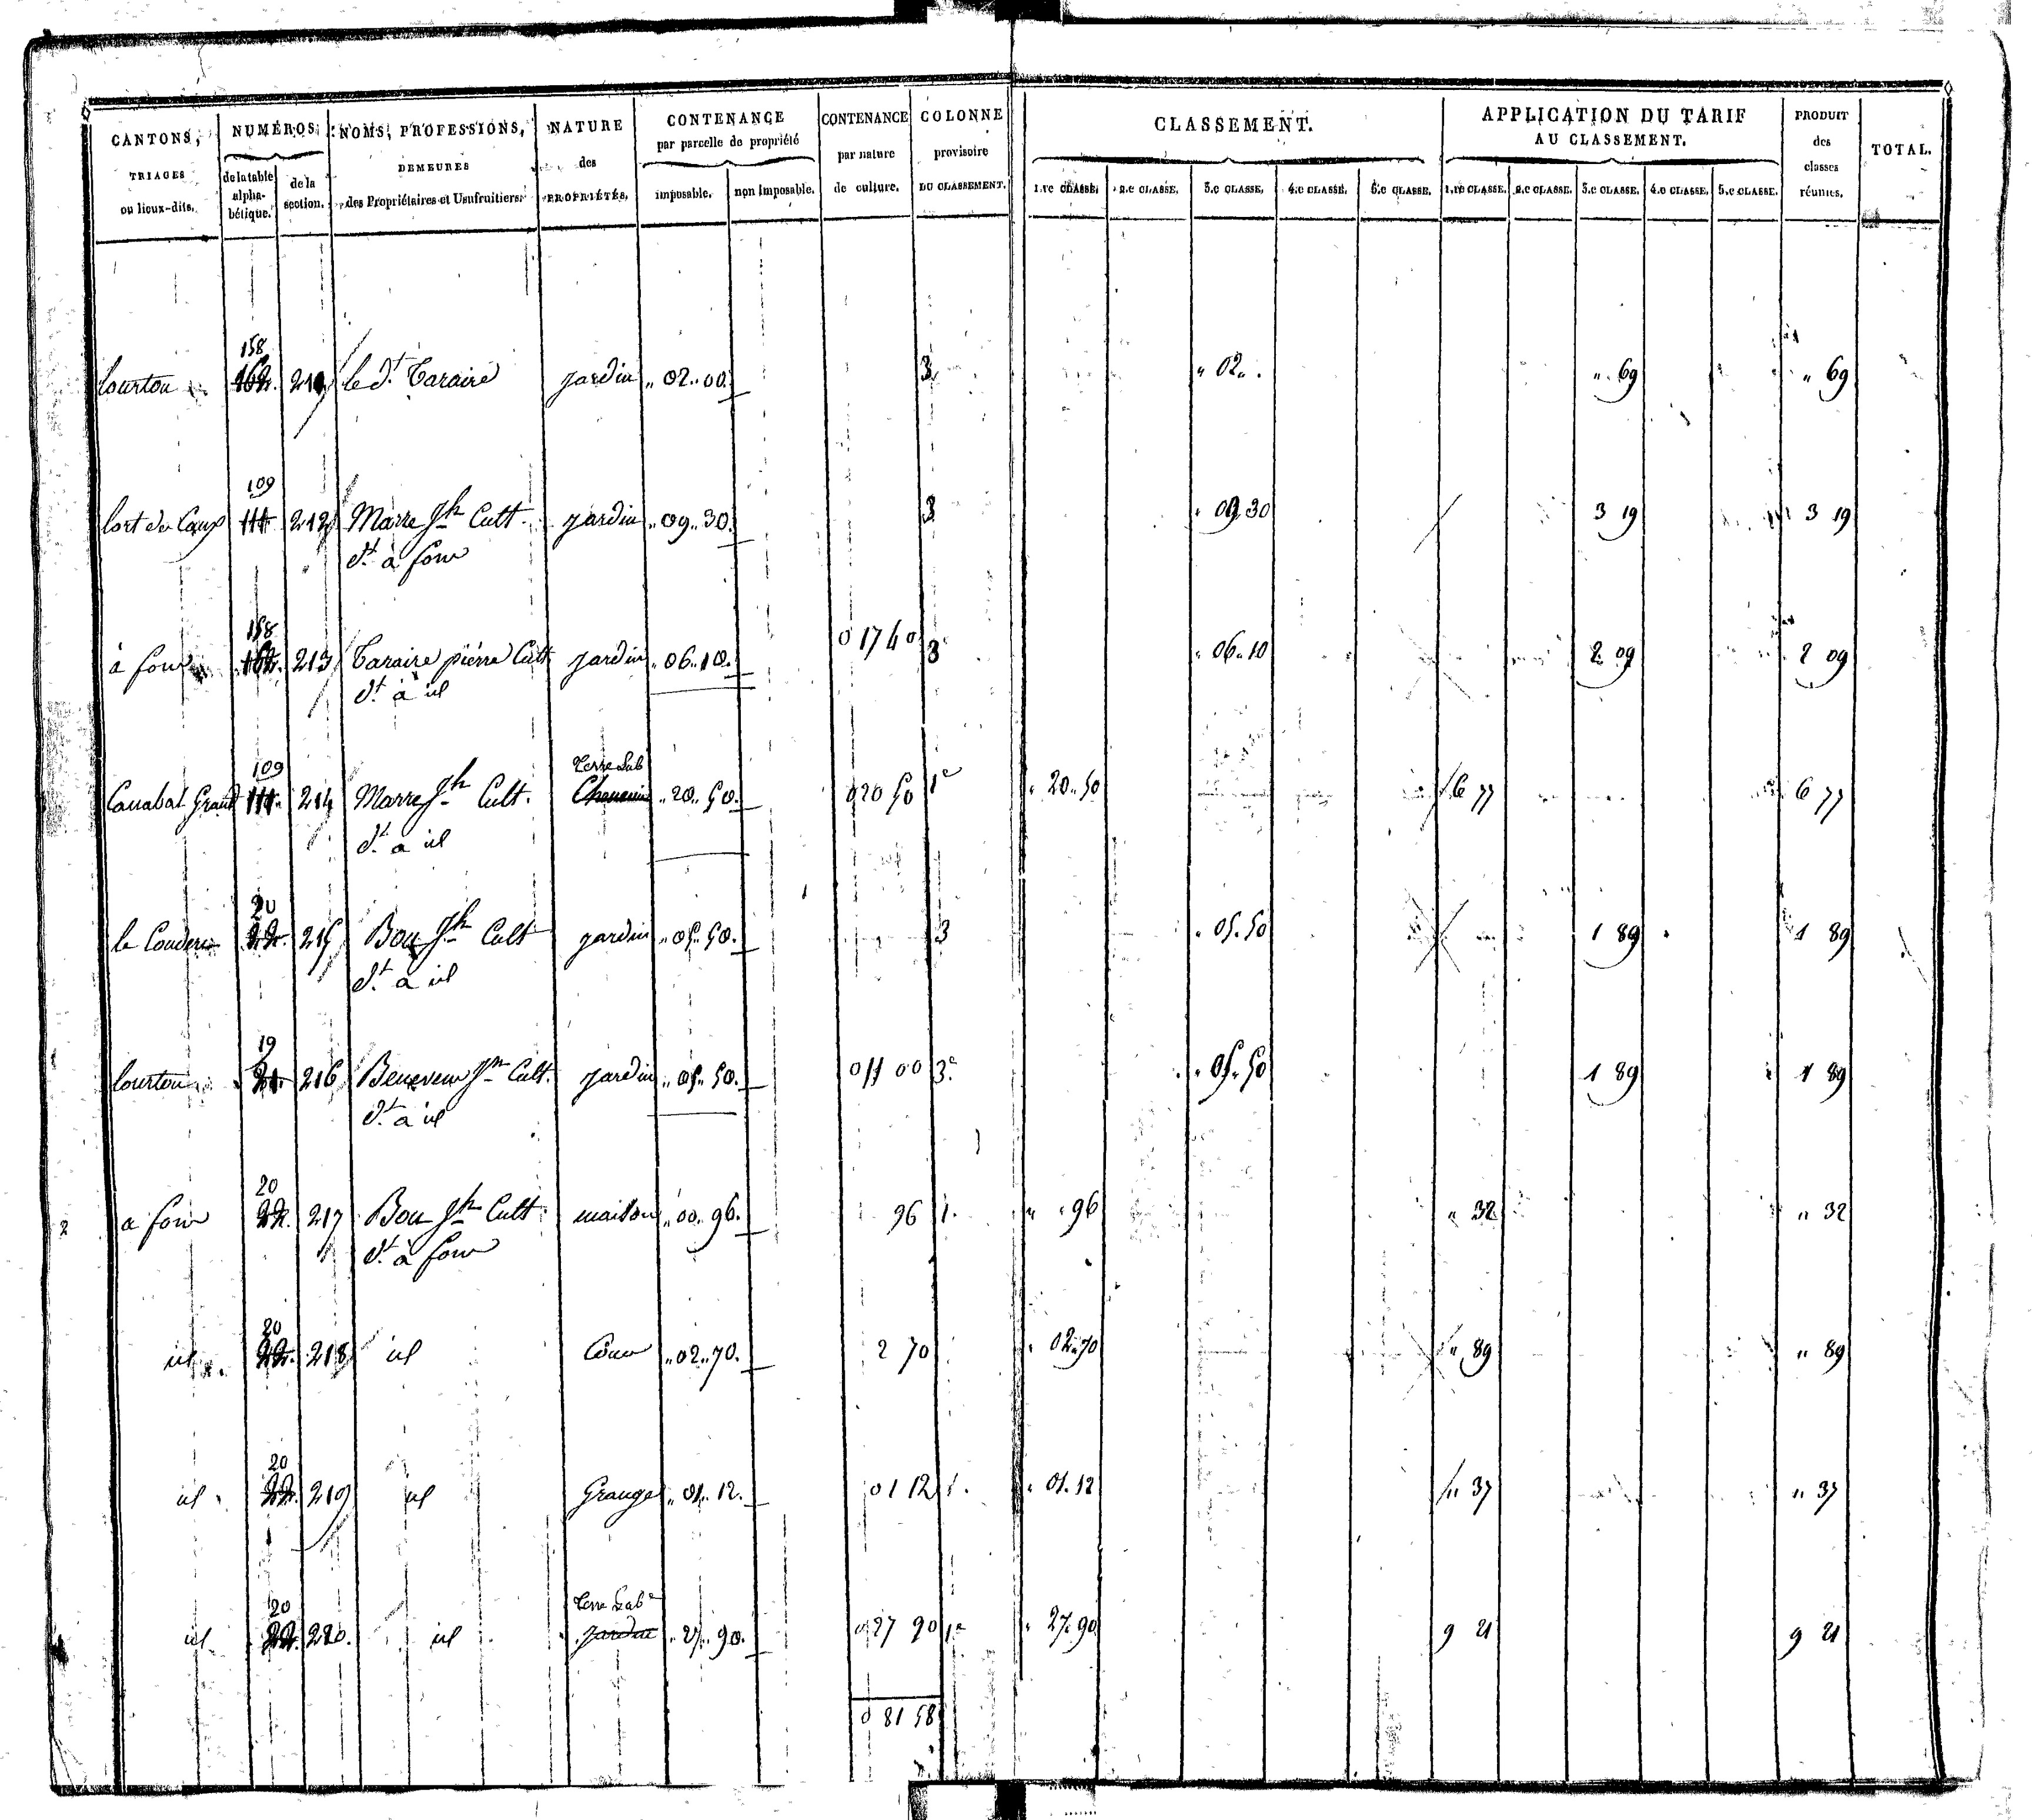 CANTONS, TRIAGES ou lieux-dits. | NUMÉROS de la table alphabétique. | de la section. | NOMS, PROFESSIONS, DEMEURES des Propriétaires et Usufruitiers. | NATURE des PROPRIÉTÉS. | CONTENANCE par parcelle de propriété imposable. | non imposable. | CONTENANCE par nature de culture. | COLONNE provisoire DU CLASSEMENT. | CLASSEMENT. 1.re CLASSE. | 2.e CLASSE. | 3.e CLASSE. | 4.e CLASSE. | 5.e CLASSE. | APPLICATION DU TARIF AU CLASSEMENT. 1.re CLASSE. | 2.e CLASSE. | 3.e CLASSE. | 4.e CLASSE. | 5.e CLASSE. | PRODUIT des classes réunies. | TOTAL.
158
lourtou 162. 211 le d.t Taraire jardin „ 02 „ 00. 3 „ 02 „ . „ 69 „ 69
109
lort de 111 212 Marre Jh Cult. jardin „ 09 „ 30. 3 „ 09 30 3 19 3 19
d.t à four
158
à four 162. 213 Taraire pierre Cult jardin „ 06 „ 10. 0 17 40 3 „ 06 „ 10 2 09 2 09
d.t à id
109 Terre Lab
Cauabal Grand 111. 214 Marre Jh Cult. „ 20 „ 50. 0 20 50 1e „ 20 „ 50 6 77 6 77
d.t à id
20
le Couderc 22. 215 Bou Jh Cult jardin „ 05 „ 50. 3 „ 05 „ 50 1 89 1 89
d.t à id
19
lourtou 21. 216 Jn Cult. jardin „ 05 „ 50. 0 11 00 3e „ 05 „ 50 1 89 1 89
d.t à id
20
2 a four 22. 217 Bou Jh Cult maison „ 00 „ 96. 96 1. „ „ 96 „ 32 „ 32
d.t à four
20
id 22. 218 id Cour „ 02 „ 70. 2 70 „ 02 „ 70 „ 89 „ 89
20
id 22. 219 id Grange „ 01 „ 12. 01 12 1. „ 01 „ 12 „ 37 „ 37
20 Terre Labe
id 22. 220. id jardin „ 27 „ 90. 0 27 90 1e „ 27 „ 90 9 21 9 21
0 81 58